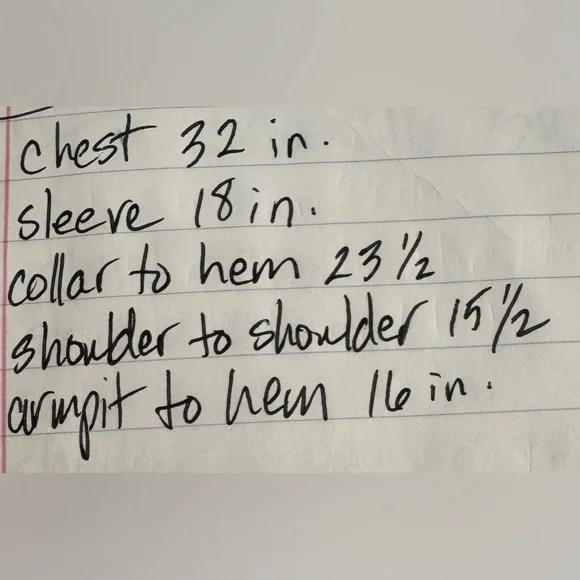 chest 32 in.
sleeve 18 in.
collar to hem 23 1/2
shoulder to shoulder 15 1/2
armpit to hem 16 in.